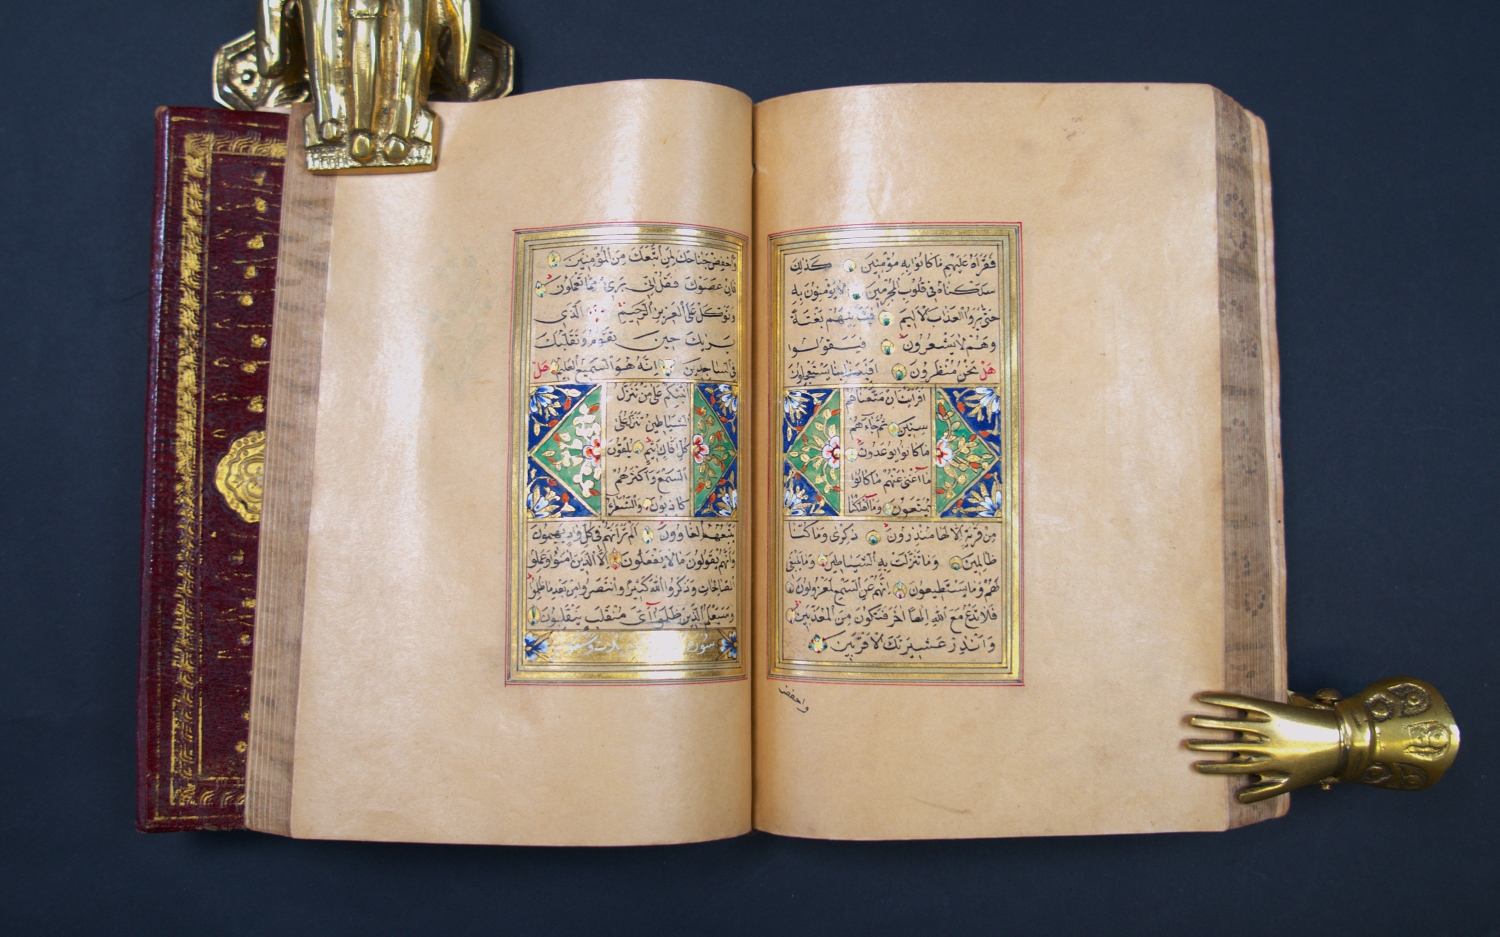 فَقَرَأَهُ عَلَيْهِمْ مَا كَانُوا بِهِ مُؤْمِنِينَ كَذَلِكَ
سَلَكْنَاهُ فِي قُلُوبِ الْمُجْرِمِينَ لَا يُؤْمِنُونَ بِهِ
حَتَّى يَرَوُا الْعَذَابَ الْأَلِيمَ فَيَأْتِيَهُمْ بَغْتَةً
وَهُمْ لَا يَشْعُرُونَ فَيَقُولُوا
هَلْ نَحْنُ مُنْظَرُونَ اَفَبِعَذَابِنَا يَسْتَعْجِلُونَ
اَفَرَاَيْتَ اِنْ مَتَّعْنَاهُمْ
سِنِينَ ثُمَّ جَاءَهُمْ
مَا كَانُوا يُوعَدُونَ
مَا اَغْنَى عَنْهُمْ مَا كَانُوا
يُمَتَّعُونَ وَمَا اَهْلَكْنَا
مِنْ قَرْيَةٍ اِلَّا لَهَا مُنْذِرُونَ ذِكْرَى وَمَا كُنَّا
ظَالِمِينَ وَمَا تَنَزَّلَتْ بِهِ الشَّيَاطِينُ وَمَا يَنْبَغِي
لَهُمْ وَمَا يَسْتَطِيعُونَ اِنَّهُمْ عَنِ السَّمْعِ لَمَعْزُولُونَ
فَلَا تَدْعُ مَعَ اللهِ اِلَهًا اٰخَرَ فَتَكُونَ مِنَ الْمُعَذَّبِينَ
وَاَنْذِرْ عَشِيرَتَكَ الْاَقْرَبِينَ
واخفض
وَاخْفِضْ جَنَاحَكَ لِمَنِ اتَّبَعَكَ مِنَ الْمُؤْمِنِينَ
فَاِنْ عَصَوْكَ فَقُلْ اِنِّي بَرِيءٌ مِمَّا تَعْمَلُونَ
وَتَوَكَّلْ عَلَى الْعَزِيزِ الرَّحِيمِ الَّذِي
يَرَيكَ حِينَ تَقُومُ وَتَقَلُّبَكَ
فِي السَّاجِدِينَ اِنَّهُ هُوَ السَّمِيعُ الْعَلِيمُ هَلْ
اُنَبِّئُكُمْ عَلَى مَنْ تَنَزَّلُ
الشَّيَاطِينُ تَنَزَّلُ عَلَى
كُلِّ اَفَّاكٍ اَثِيمٍ يُلْقُونَ
السَّمْعَ وَاَكْثَرُهُمْ
كَاذِبُونَ وَالشُّعَرَاءُ
يَتَّبِعُهُمُ الْغَاوُونَ اَلَمْ تَرَ اَنَّهُمْ فِي كُلِّ وَادٍ يَهِيمُونَ
وَاَنَّهُمْ يَقُولُونَ مَا لَا يَفْعَلُونَ اِلَّا الَّذِينَ اٰمَنُوا وَعَمِلُوا
الصَّالِحَاتِ وَذَكَرُوا اللهَ كَثِيرًا وَانْتَصَرُوا مِنْ بَعْدِ مَا ظُلِمُوا
وَسَيَعْلَمُ الَّذِينَ ظَلَمُوا اَيَّ مُنْقَلَبٍ يَنْقَلِبُونَ
سورة